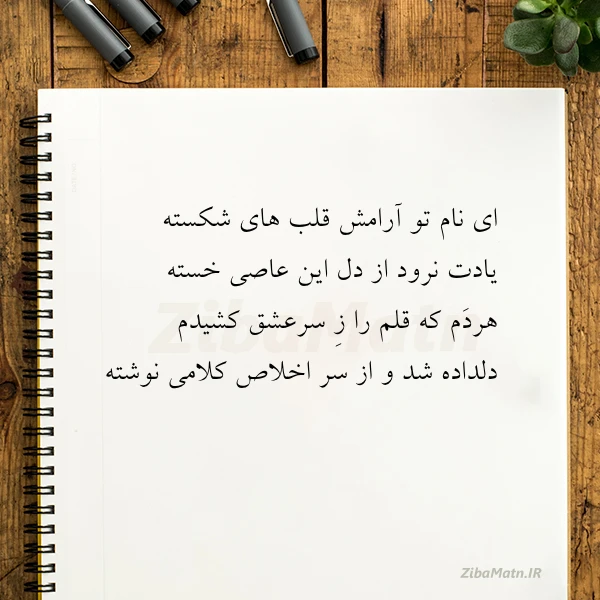 ای نام تو آرامش قلب های شکسته
یادت نرود از دل این عاصی خسته
هردَم که قلم را زِ سرعشق کشیدم
دلداده شد و از سر اخلاص کلامی نوشته
ZibaMatn
ZibaMatn.IR